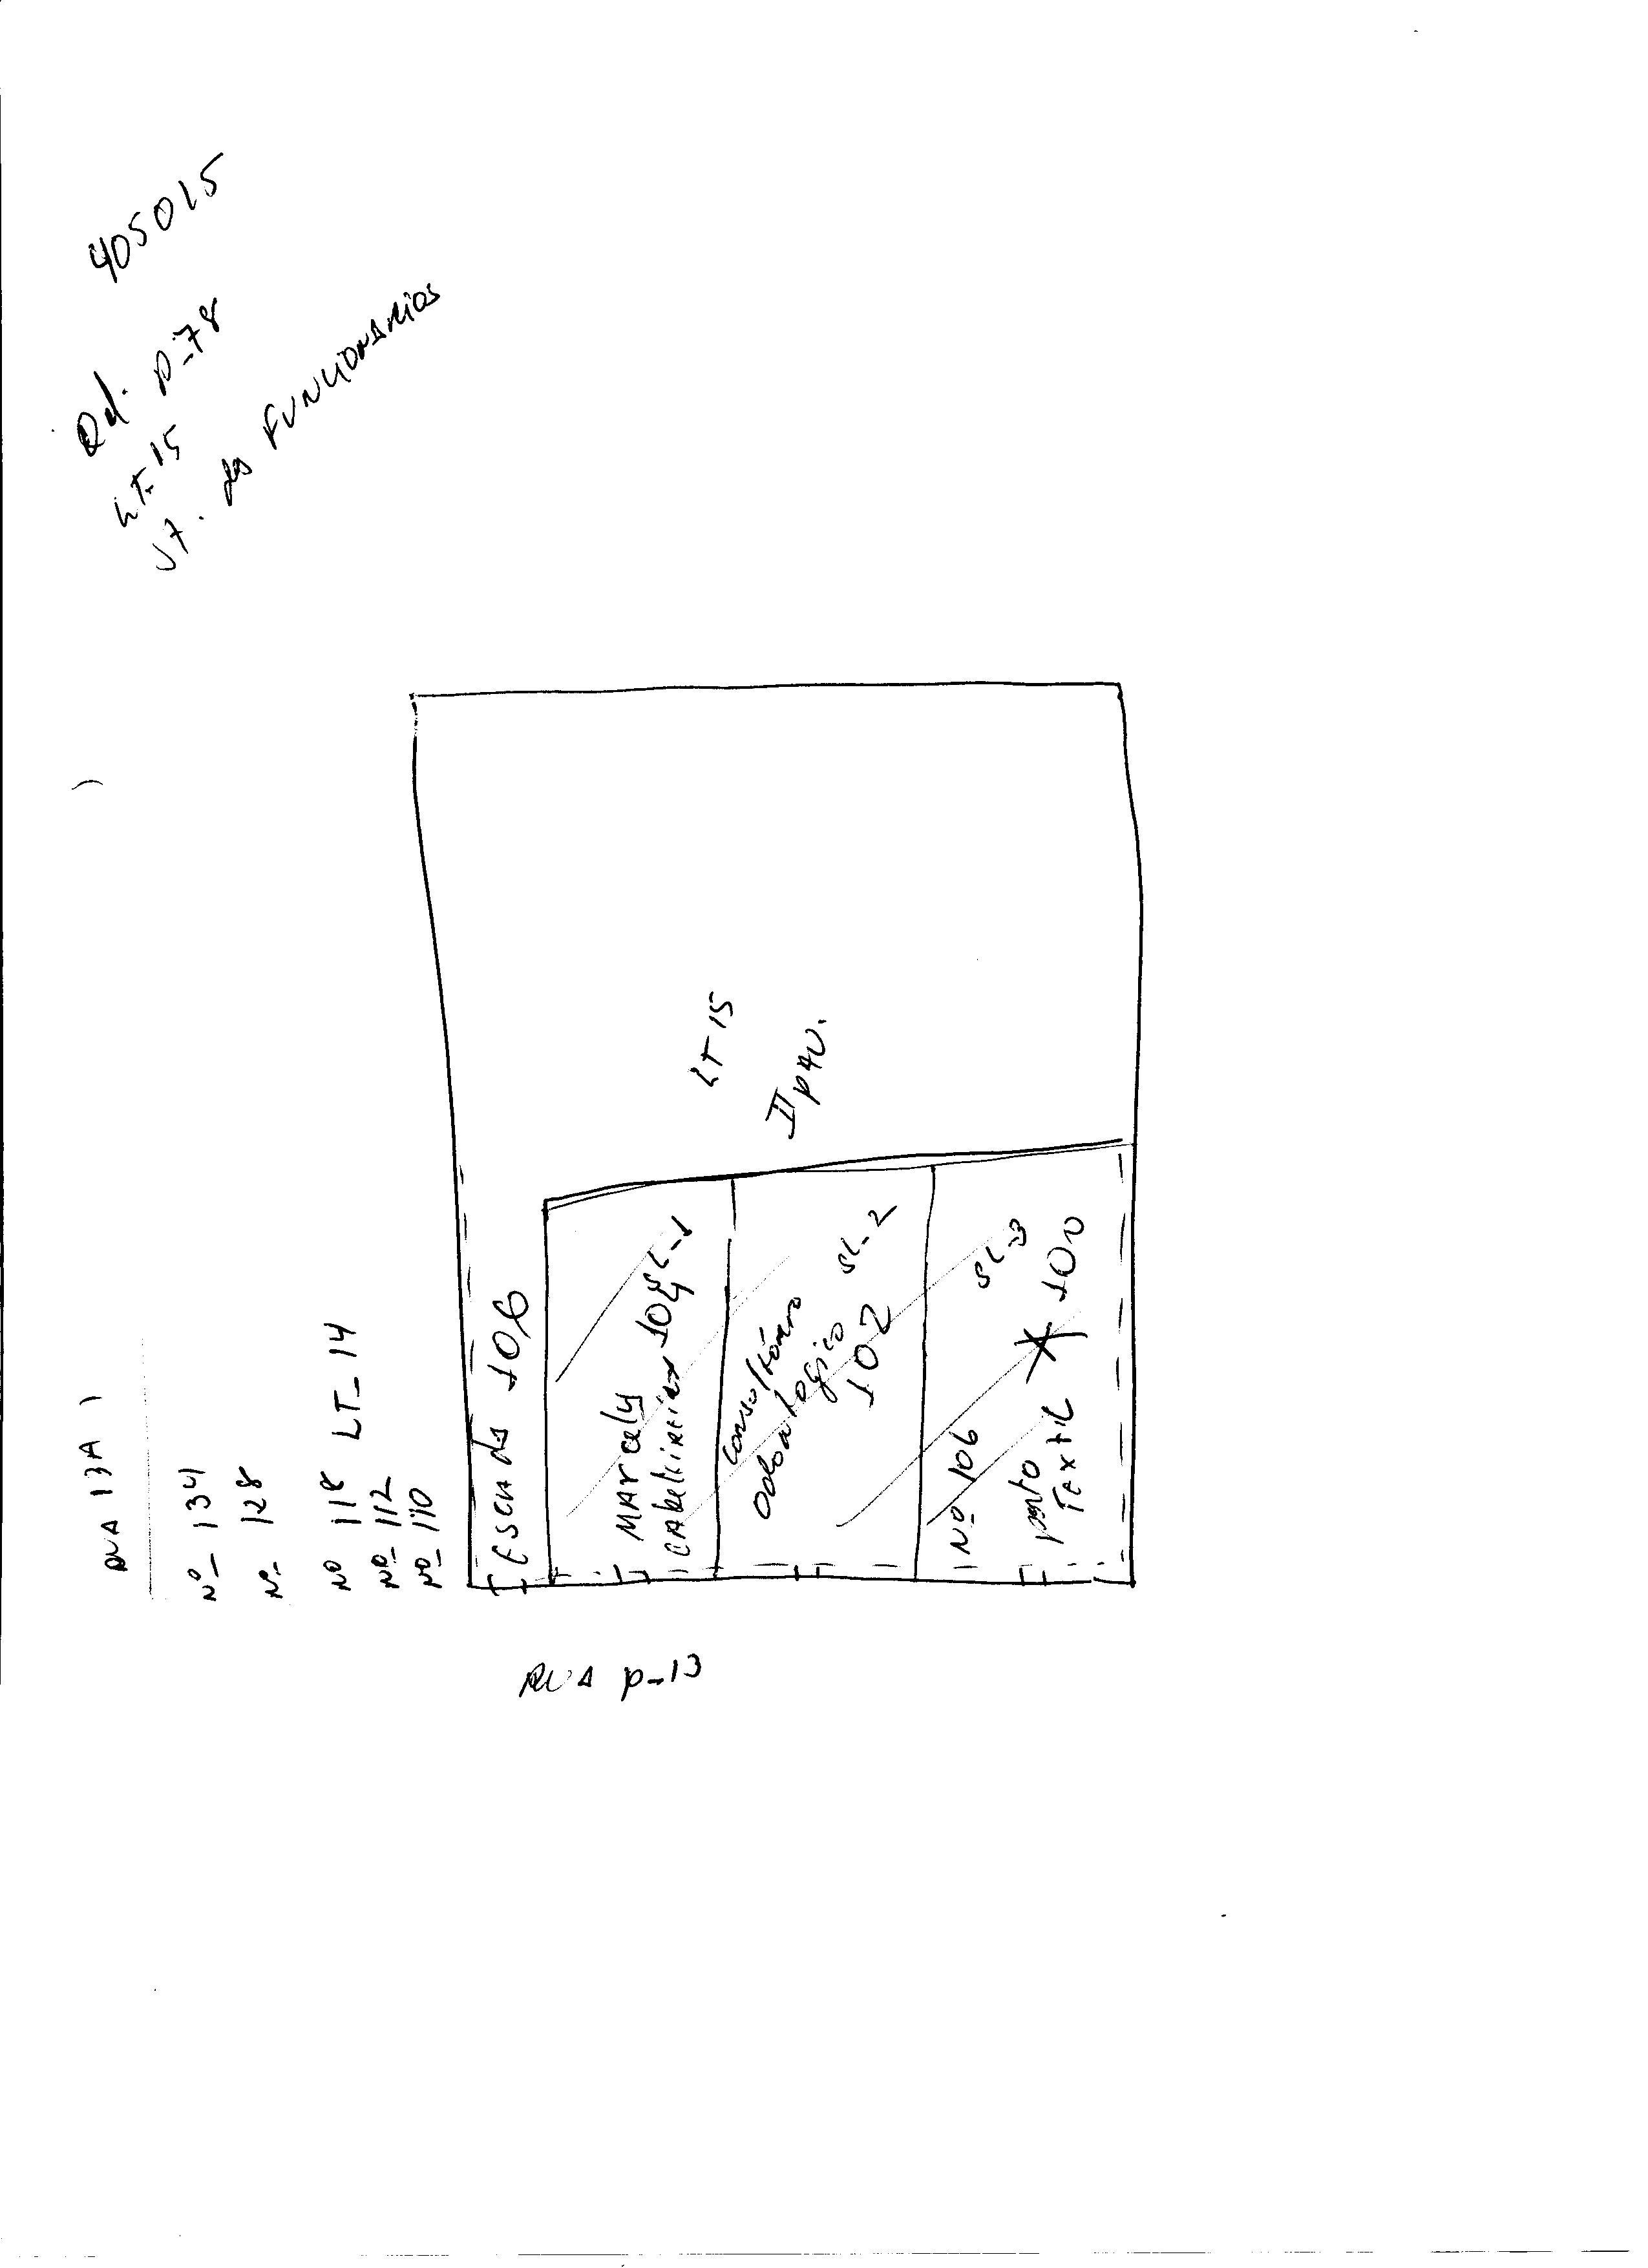 405015
Qd. P-78
LT-15
ST. dos FUNCIONARIOS
LT 15
II PAV.
RUA 13A
Nº 134
Nº 128
Nº 118 LT-14
Nº 112
Nº 110
ESCADA 106
MARCELY
CABELEIREIRA 104 SL-1
Consultório
Odontologico SL-2
102
Nº 106 SL-3
ponto
TEXTIL 100
RUA P-13